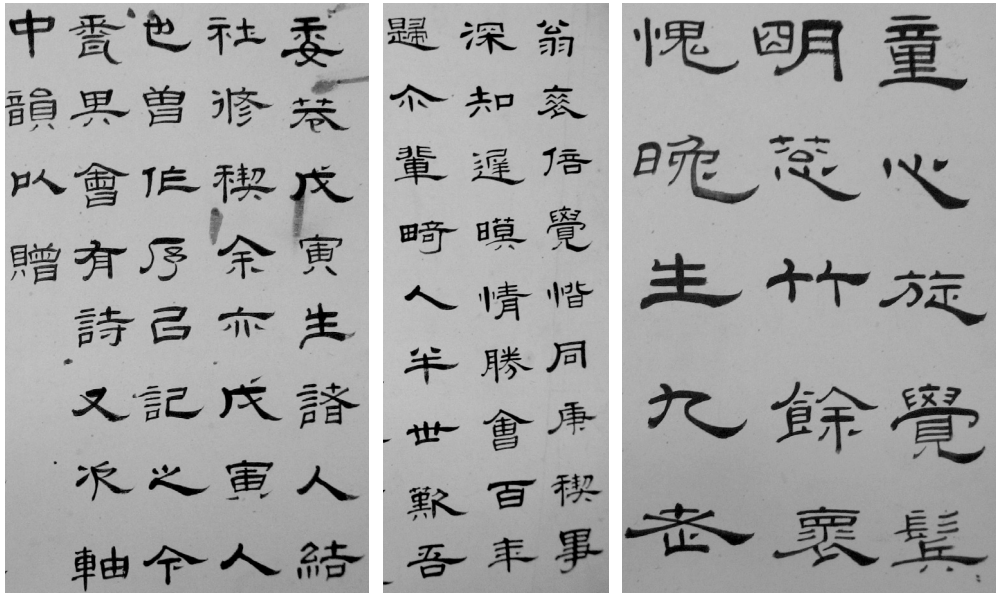 童心旋覺鬢
明蕊竹餘褱
愧晚生九老
翁衰倍覺惜同庚禊事
深知遲暮情勝會百年
歸尒輩畸人半世歎吾
委菴戊寅生諸人結
社修禊余亦戊寅人
也曾作序己記之今
會有詩又次軸
中韻以贈